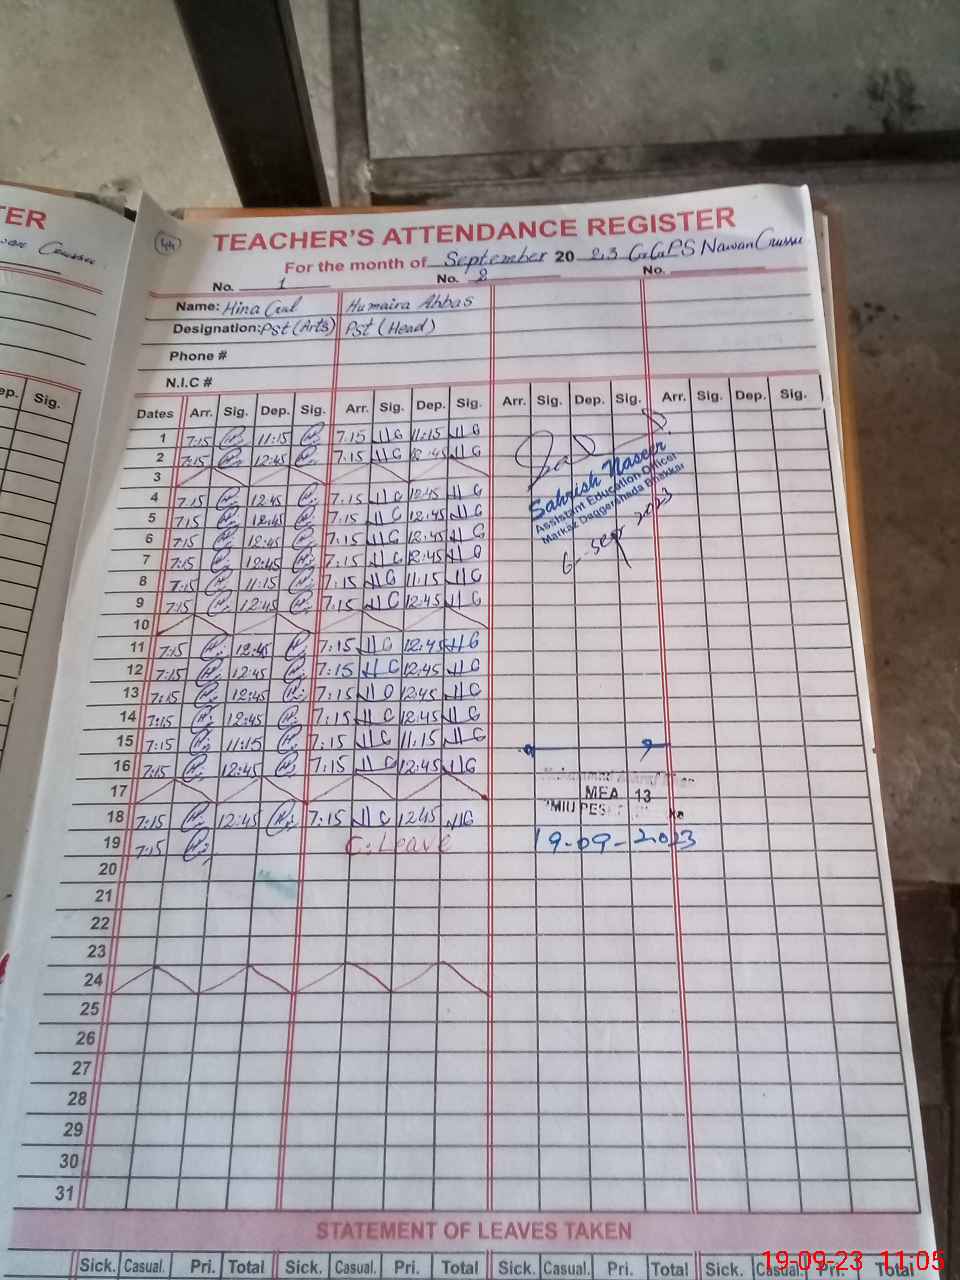 TER
TEACHER'S ATTENDANCE REGISTER
44
For the month of September 20 23 G.G.P.S Nawan
No. 1 No. 2 No.
Name: Hina Gul Humaira Abbas
Designation: Pst (Arts) Pst (Head)
Phone #
N.I.C #
ep. Sig.
Dates Arr. Sig. Dep. Sig. Arr. Sig. Dep. Sig. Arr. Sig. Dep. Sig. Arr. Sig. Dep. Sig.
1 7:15 11:15 7:15 11:15
2 7:15 12:45 7:15 12:45
3
4 7:15 12:45 7:15 12:45
5 7:15 12:45 7:15 12:45
6 7:15 12:45 7:15 12:45
7 7:15 12:45 7:15 12:45
8 7:15 11:15 7:15 11:15
9 7:15 12:45 7:15 12:45
10
11 7:15 12:45 7:15 12:45
12 7:15 12:45 7:15 12:45
13 7:15 12:45 7:15 12:45
14 7:15 12:45 7:15 12:45
15 7:15 11:15 7:15 11:15
16 7:15 12:45 7:15 12:45
17
18 7:15 12:45 7:15 12:45
19 7:15 C. Leave
20
21
22
23
24
25
26
27
28
29
30
31
Sahrish Naseer
Assistant Education Officer
Markaz Daggershada Bhakkar
6-sep 2023
Muhammad
MEA 13
19-09-2023
STATEMENT OF LEAVES TAKEN
Sick. Casual. Pri. Total Sick. Casual. Pri. Total Sick. Casual. Pri. Total Sick. Casual. Pri. Total
19-09-23 11:05